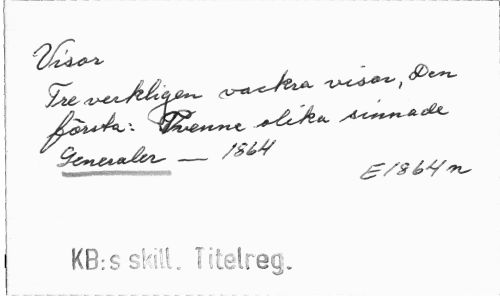 Visor
Tre verkligen vackra visor, Den
första: Tvenne olika sinnade
Generaler — 1864
E1864n
KB:s skill. Titelreg.